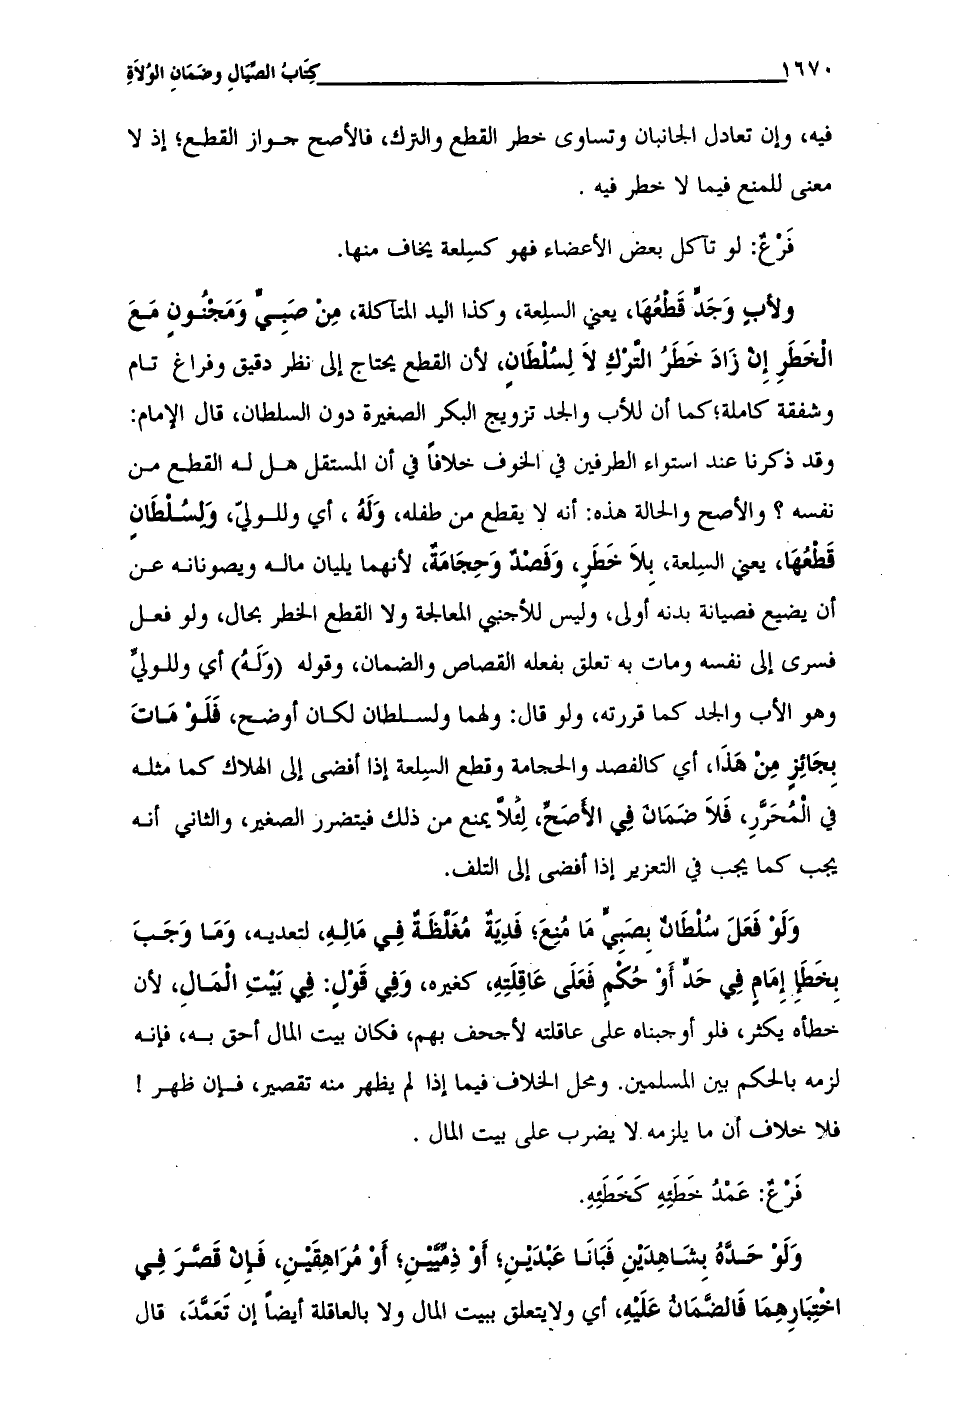 ١٦٧٠ كِتَابُ الصِّيَالِ وضَمَانِ الوُلاَةِ
فيه، وإن تعادل الجانبان وتساوى خطر القطع والترك، فالأصح جواز القطع؛ إذ لا
معنى للمنع فيما لا خطر فيه .
فَرْعٌ: لو تآكل بعض الأعضاء فهو كسِلعة يخاف منها.
ولأبٍ وَجَدٍّ قَطْعُهَا، يعني السلعة، وكذا اليد المتآكلة، مِنْ صَبِيٍّ وَمَجْنُونٍ مَعَ
الْخَطَرِ إِنْ زَادَ خَطَرُ التَّرْكِ لاَ لِسُلْطَانٍ، لأن القطع يحتاج إلى نظر دقيق وفراغ تام
وشفقة كاملة؛ كما أن للأب والجد تزويج البكر الصغيرة دون السلطان، قال الإمام:
وقد ذكرنا عند استواء الطرفين في الخوف خلافاً في أن المستقل هل له القطع من
نفسه ؟ والأصح والحالة هذه: أنه لا يقطع من طفله، وَلَهُ ، أي وللوليّ، وَلِسُلْطَانٍ
قَطْعُهَا، يعني السِلعة، بِلاَ خَطَرٍ، وَفَصْدٌ وَحِجَامَةٌ، لأنهما يليان ماله ويصونانه عن
أن يضيع فصيانة بدنه أولى، وليس للأجنبي المعالجة ولا القطع الخطر بحال، ولو فعل
فسرى إلى نفسه ومات به تعلق بفعله القصاص والضمان، وقوله (وَلَهُ) أي وللوليِّ
وهو الأب والجد كما قررته، ولو قال: ولهما ولسلطان لكان أوضح، فَلَوْ مَاتَ
بِجَائِزٍ مِنْ هَذَا، أي كالفصد والحجامة وقطع السِلعة إذا أفضى إلى الهلاك كما مثله
في الْمُحَرَّرِ، فَلاَ ضَمَانَ فِي الأَصَحِّ، لِئَلاَّ يمنع من ذلك فيتضرر الصغير، والثاني أنه
يجب كما يجب في التعزير إذا أفضى إلى التلف.
وَلَوْ فَعَلَ سُلْطَانٌ بِصَبِيٍّ مَا مُنِعَ؛ فَدِيَةٌ مُغَلَّظَةٌ فِي مَالِهِ، لتعديه، وَمَا وَجَبَ
بِخَطَإِ إِمَامٍ فِي حَدٍّ أَوْ حُكْمٍ فَعَلَى عَاقِلَتِهِ، كغيره، وَفِي قَوْلٍ: فِي بَيْتِ الْمَالِ، لأن
خطأه يكثر، فلو أوجبناه على عاقلته لأجحف بهم، فكان بيت المال أحق به، فإنه
لزمه بالحكم بين المسلمين. ومحل الخلاف فيما إذا لم يظهر منه تقصير، فإن ظهر !
فلا خلاف أن ما يلزمه لا يضرب على بيت المال .
فَرْعٌ: عَمْدُ خَطَئِهِ كَخَطَئِهِ.
وَلَوْ حَدَّهُ بِشَاهِدَيْنِ فَبَانَا عَبْدَيْنِ؛ أَوْ ذِمِّيَّيْنِ؛ أَوْ مُرَاهِقَيْنِ، فَإِنْ قَصَّرَ فِي
اخْتِبَارِهِمَا فَالضَّمَانُ عَلَيْهِ، أي ولايتعلق ببيت المال ولا بالعاقلة أيضاً إن تَعَمَّدَ، قال